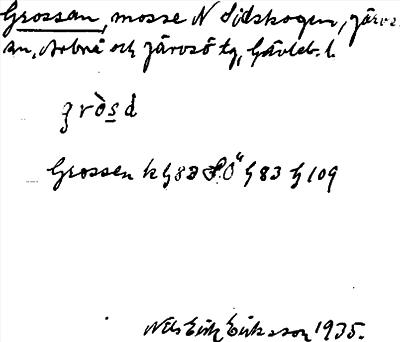 Grossan, mosse N Sidskogen, Järvs-
än, Arbrå och Järvsö tg, Gävleb. l.
grò̱sd
Grossen k G83 S.Ö G83 G109
Nils Erik Eriksson 1935.